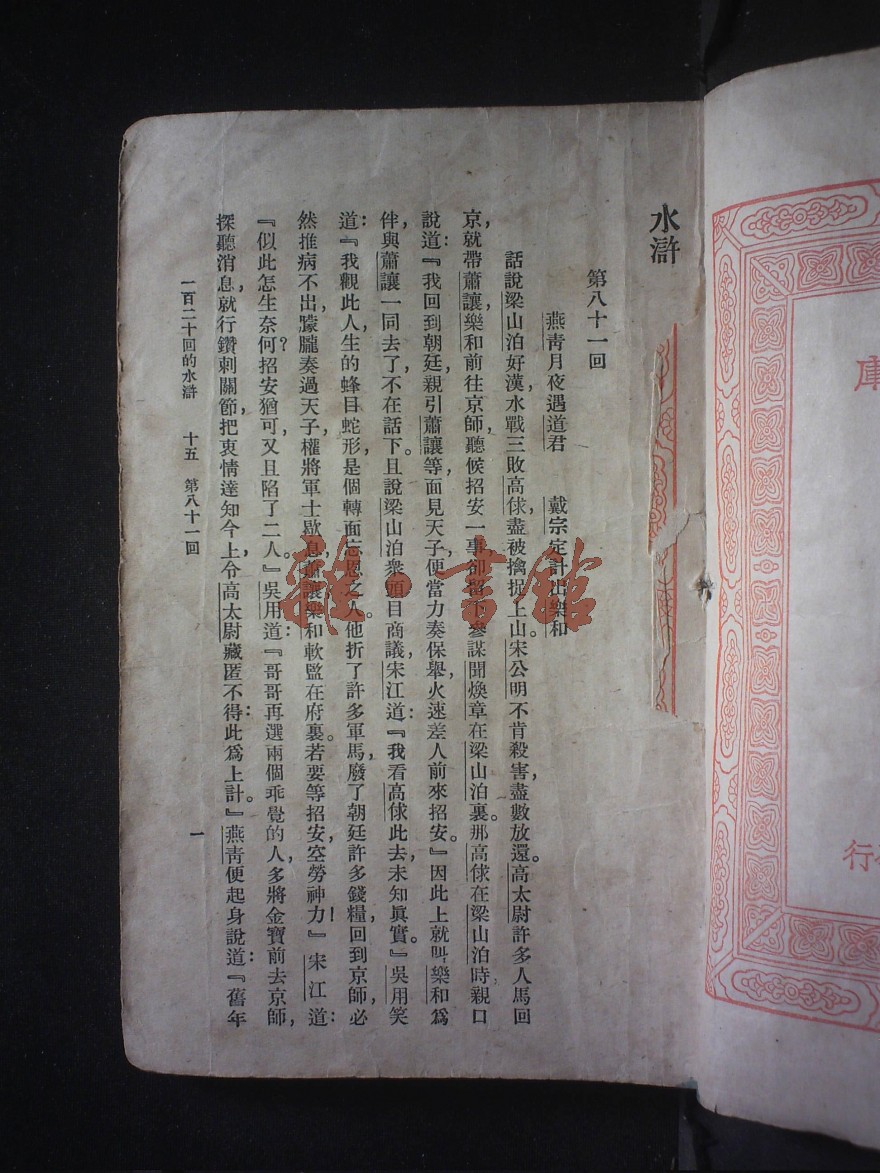 庫
行
水滸
第八十一回
燕青月夜遇道君　戴宗定計出樂和
話說梁山泊好漢，水戰三敗高俅，盡被擒捉上山。宋公明不肯殺害，盡數放還。高太尉許多人馬回
京，就帶蕭讓，樂和前往京師，聽候招安一事，卻留下參謀聞煥章在梁山泊裏。那高俅在梁山泊時，親口
說道：『我回到朝廷，親引蕭讓等，面見天子，便當力奏保舉，火速差人前來招安。』因此上就叫樂和爲
伴，與蕭讓一同去了，不在話下。且說梁山泊衆頭目商議，宋江道：『我看高俅此去，未知眞實。』吳用笑
道：『我觀此人，生的蜂目蛇形，是個轉面忘恩之人。他折了許多軍馬，廢了朝廷許多錢糧，回到京師，必
然推病不出，朦朧奏過天子，權將軍士歇息，蕭讓樂和軟監在府裏。若要等招安，空勞神力！』宋江道：
『似此怎生奈何？招安猶可，又且陷了二人。』吳用道：『哥哥再選兩個乖覺的人，多將金寶前去京師，
探聽消息，就行鑽刺關節，把衷情達知今上，令高太尉藏匿不得：此爲上計。』燕青便起身說道：『舊年
一百二十回的水滸　十五　第八十一回　一
雜·書館